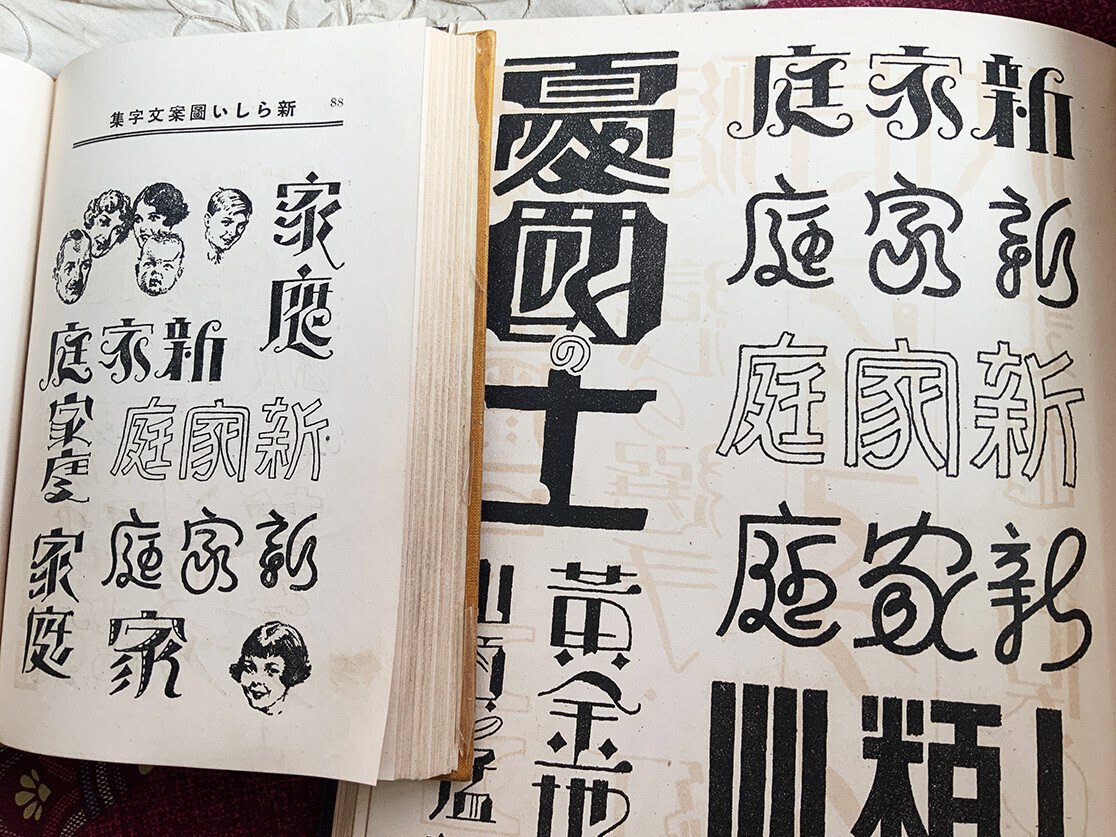 新らしい圖案文字集
88
家庭
新家庭
家庭
新家庭
新家庭
家庭
家
新家庭
新家庭
新家庭
新家庭
憂國の士
黄金地